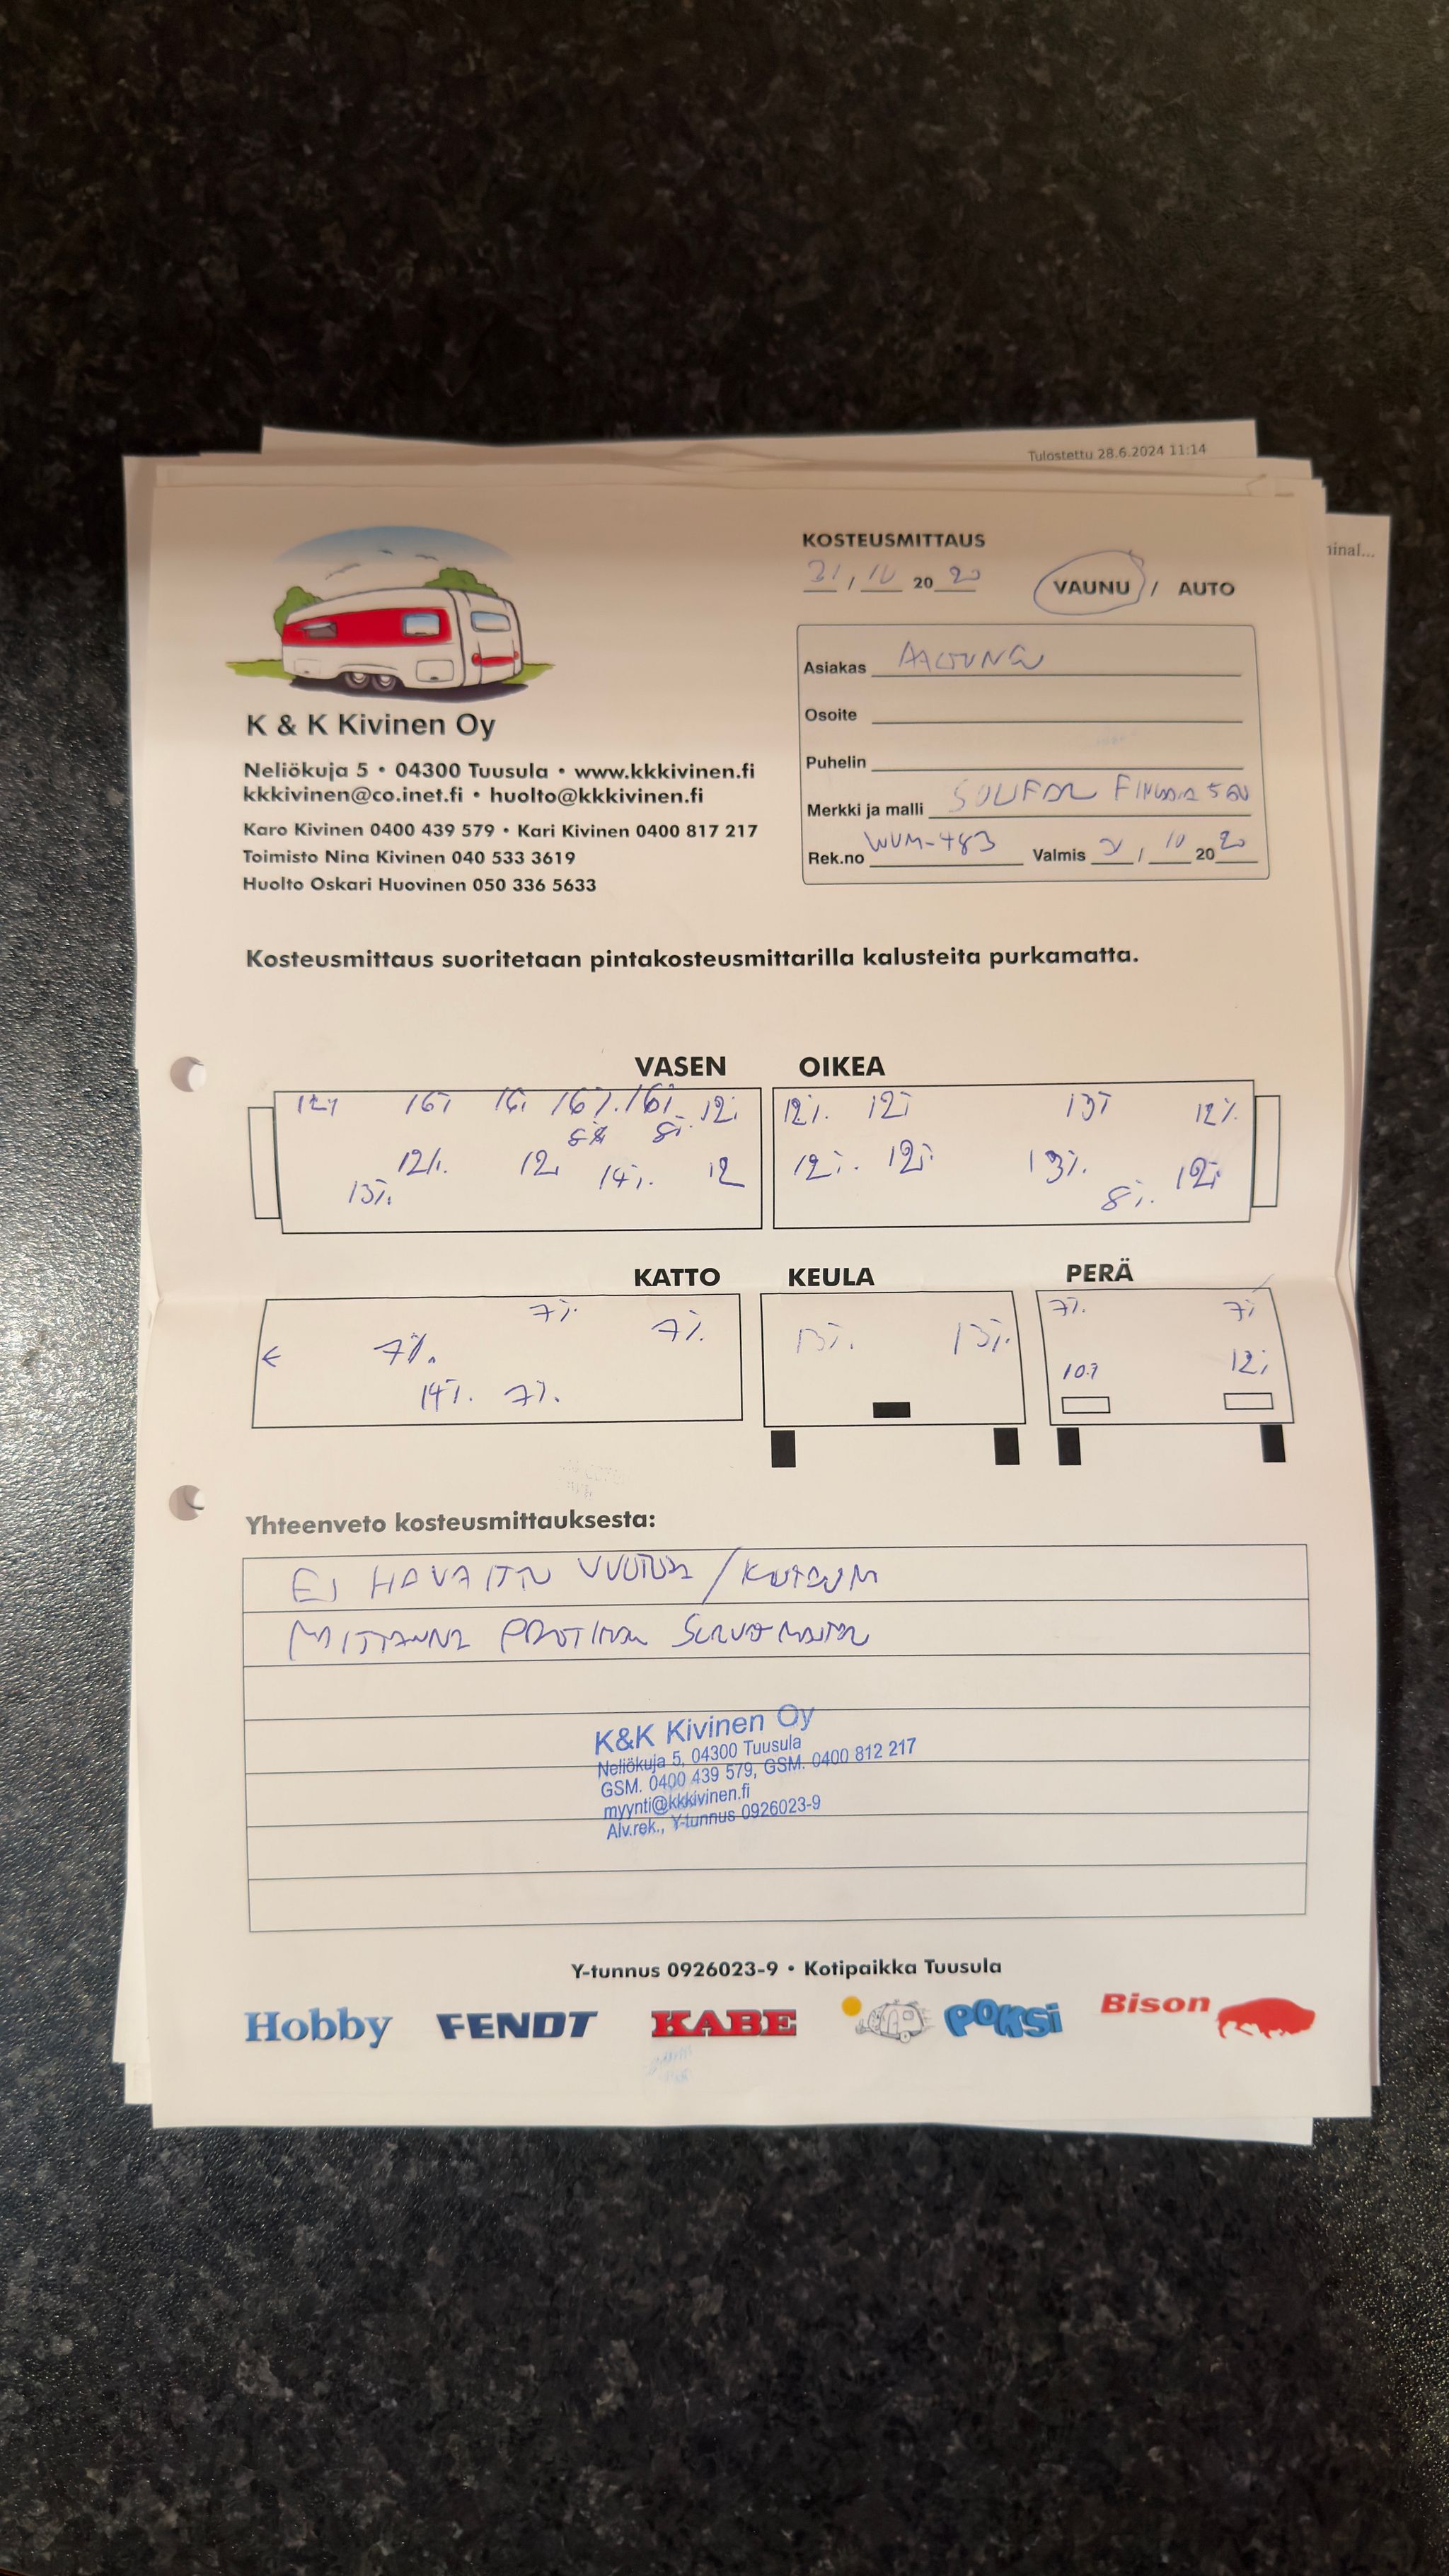 Tulostettu 28.6.2024 11:14
inal...
KOSTEUSMITTAUS
31 / 10 20 20 VAUNU / AUTO
Asiakas
Osoite
Puhelin
Merkki ja malli
Rek.no WUM-483 Valmis / 10 20 20
K & K Kivinen Oy
Neliökuja 5 • 04300 Tuusula • www.kkkivinen.fi
kkkivinen@co.inet.fi • huolto@kkkivinen.fi
Karo Kivinen 0400 439 579 • Kari Kivinen 0400 817 217
Toimisto Nina Kivinen 040 533 3619
Huolto Oskari Huovinen 050 336 5633
Kosteusmittaus suoritetaan pintakosteusmittarilla kalusteita purkamatta.
VASEN OIKEA
12% 16% 16% 16% 16% 12% 12% 12% 13% 12%
8% 8%
12% 12% 14% 12 12% 12% 13% 12%
13% 8%
KATTO KEULA PERÄ
7% 7% 7% 7%
7% 13% 13%
14% 7% 10% 12%
Yhteenveto kosteusmittauksesta:
EI HAVAITTU
K&K Kivinen Oy
Neliökuja 5, 04300 Tuusula
GSM. 0400 439 579, GSM. 0400 812 217
myynti@kkkivinen.fi
Alv.rek., Y-tunnus 0926023-9
Y-tunnus 0926023-9 • Kotipaikka Tuusula
Hobby FENDT KABE POKSi Bison